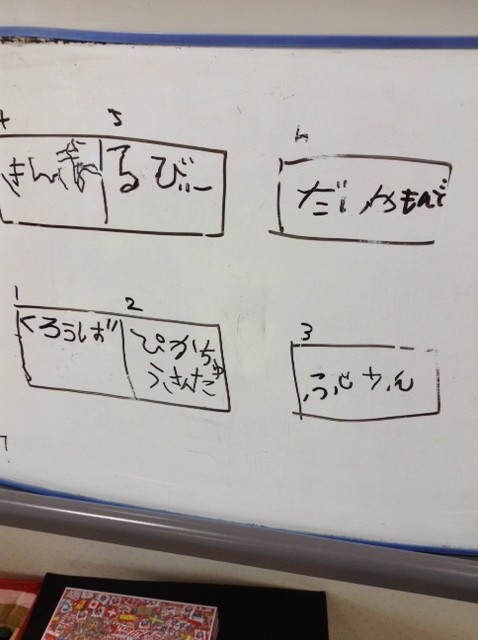 4 5
きんぎょ るびぃー
だいやもんど
1 2
くろうしお ぴかちゅ
うきんだ
3
ふじさん
7